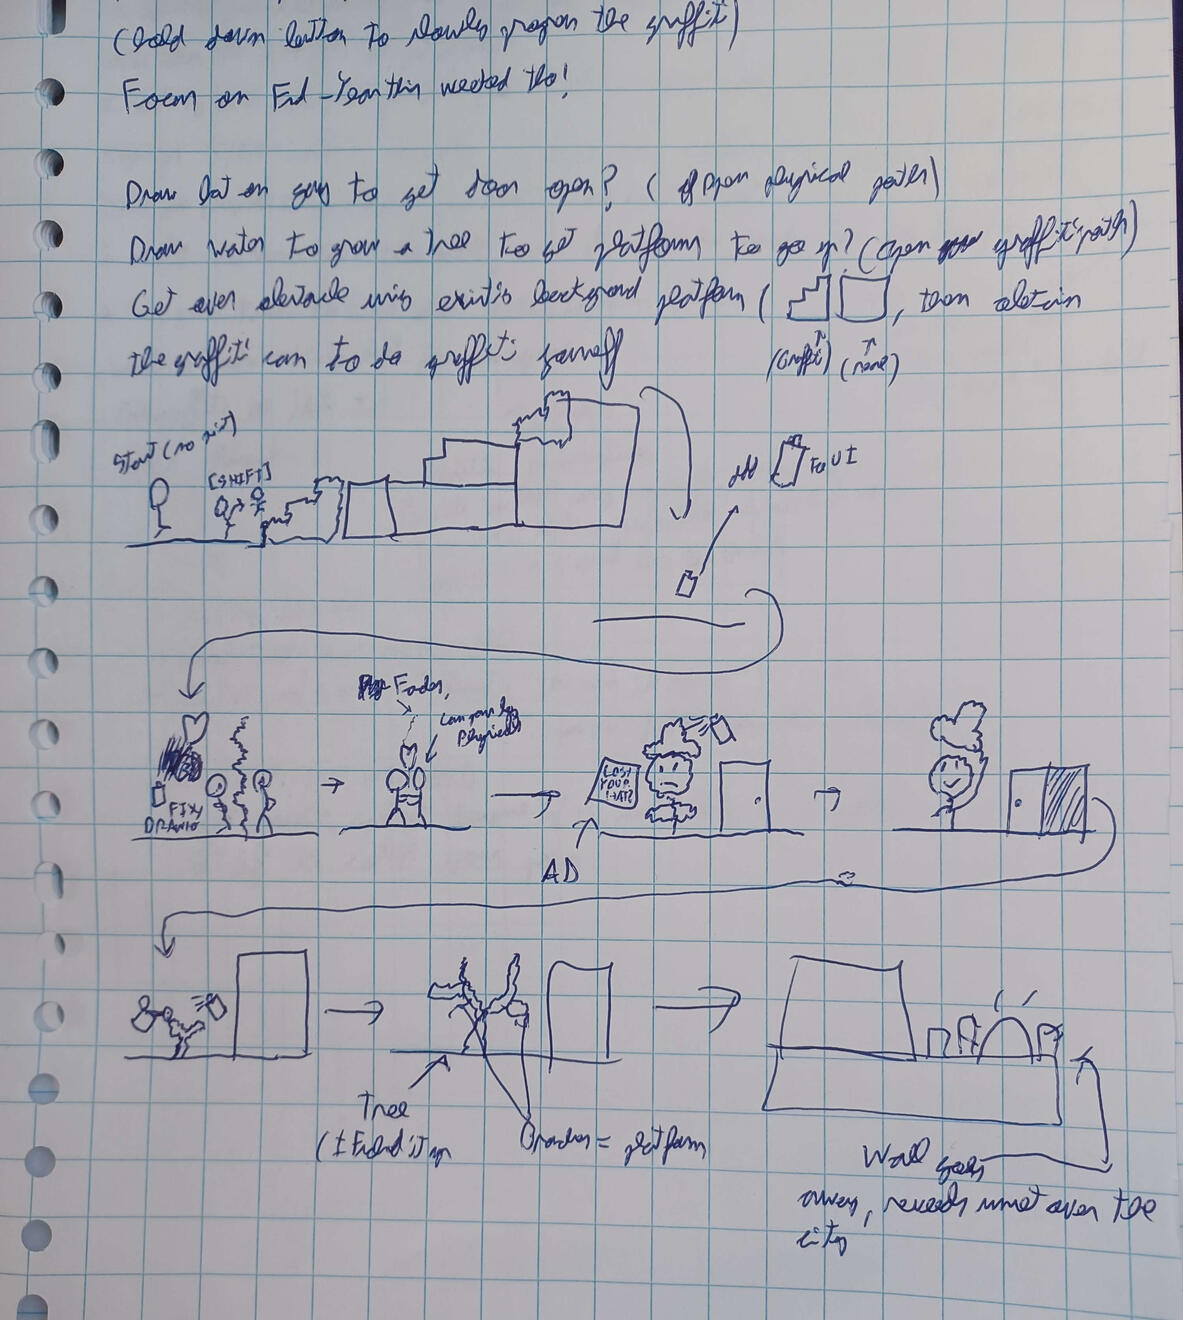 (hold down button to slowly progress the graffiti)
Focus on End - Year this weekend tho!
Draw hat on guy to get door open? (open physical path)
Draw water to grow a tree to get platform to go up? (open graffiti path)
Get over obstacle using existing background platform ( , then obtain
the graffiti can to do graffiti yourself
(Graffiti) (none)
Start (no
[SHIFT]
add To UI
Fades,
can
Physical
LOST
YOUR
HAT?
FIX
DRAWING
AD
Tree
(I F it up
Branches = platform
Wall goes
away, reveals sunset over the
city